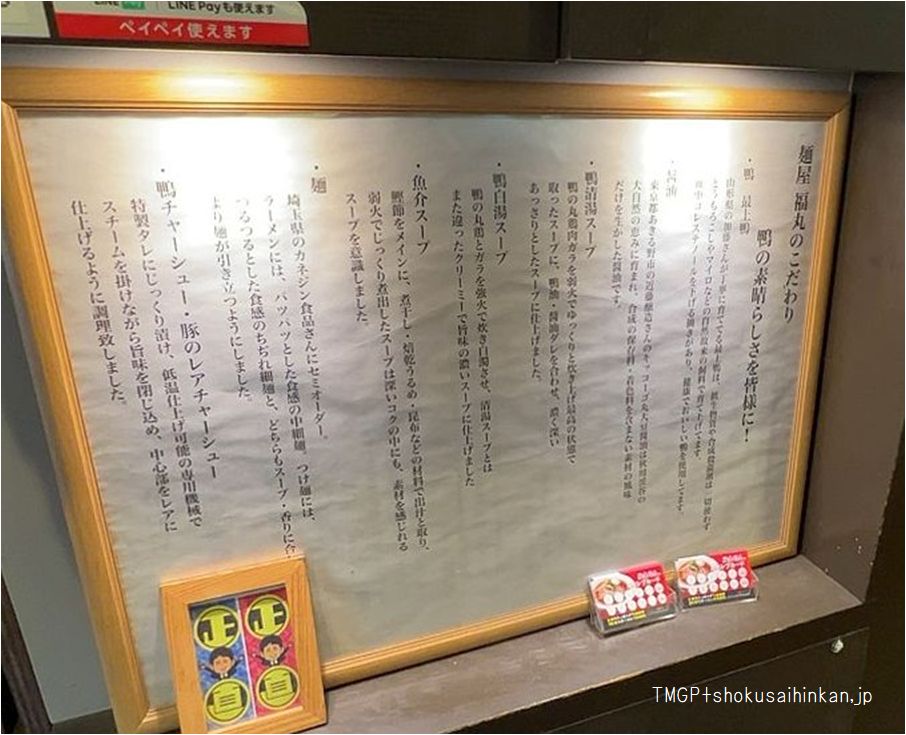 LINE Payも使えます
ペイペイ使えます
麺屋 福丸のこだわり
鴨の素晴らしさを皆様に!
・鴨 最上鴨
山形県の加藤さんが丁寧に育ててる最上鴨は、抗生物質や合成抗菌剤は一切使わず
とうもろこしやマイロなどの自然故来の飼料で育て上げてます。
血中コレステロールを下げる働きがあり、健康で若いしい鴨を使用してます。
・醤油
東京都あきる野市の近藤醸造さんのキッコーゴ丸大豆醤油は秋川渓谷の
大自然の恵みに育まれ、合成の保存料・着色料を含まない素材の風味
だけを生かした醤油です。
・鴨清湯スープ
鴨の丸鶏肉ガラを弱火でゆっくりと炊き上げ最高の状態で
取ったスープに、鴨油・醤油ダレを合わせ、濃く深い
あっさりとしたスープに仕上げました。
・鴨白湯スープ
鴨の丸鶏とガラを強火で炊き白濁させ、清湯スープとは
また違ったクリーミーで旨味の濃いスープに仕上げました
・魚介スープ
鰹節をメインに、煮干し・焙乾うるめ・昆布などの材料で出汁と取り、
弱火でじっくり煮出したスープは深いコクの中にも、素材を感じれる
スープを意識しました。
・麺
埼玉県のカネジン食品さんにセミオーダー。
ラーメンには、パッパッとした食感の中細麺。つけ麺には、
つるつるとした食感のちぢれ細麺と、どちらもスープ・香りに合
より麺が引き立つようにしました。
・鴨チャーシュー・豚のレアチャーシュー
特製タレにじっくり漬け、低温仕上げ可能の専用機械で
スチームを掛けながら旨味を閉じ込め、中心部をレアに
仕上げるように調理致しました。
TMGP+shokusaihinkan,jp